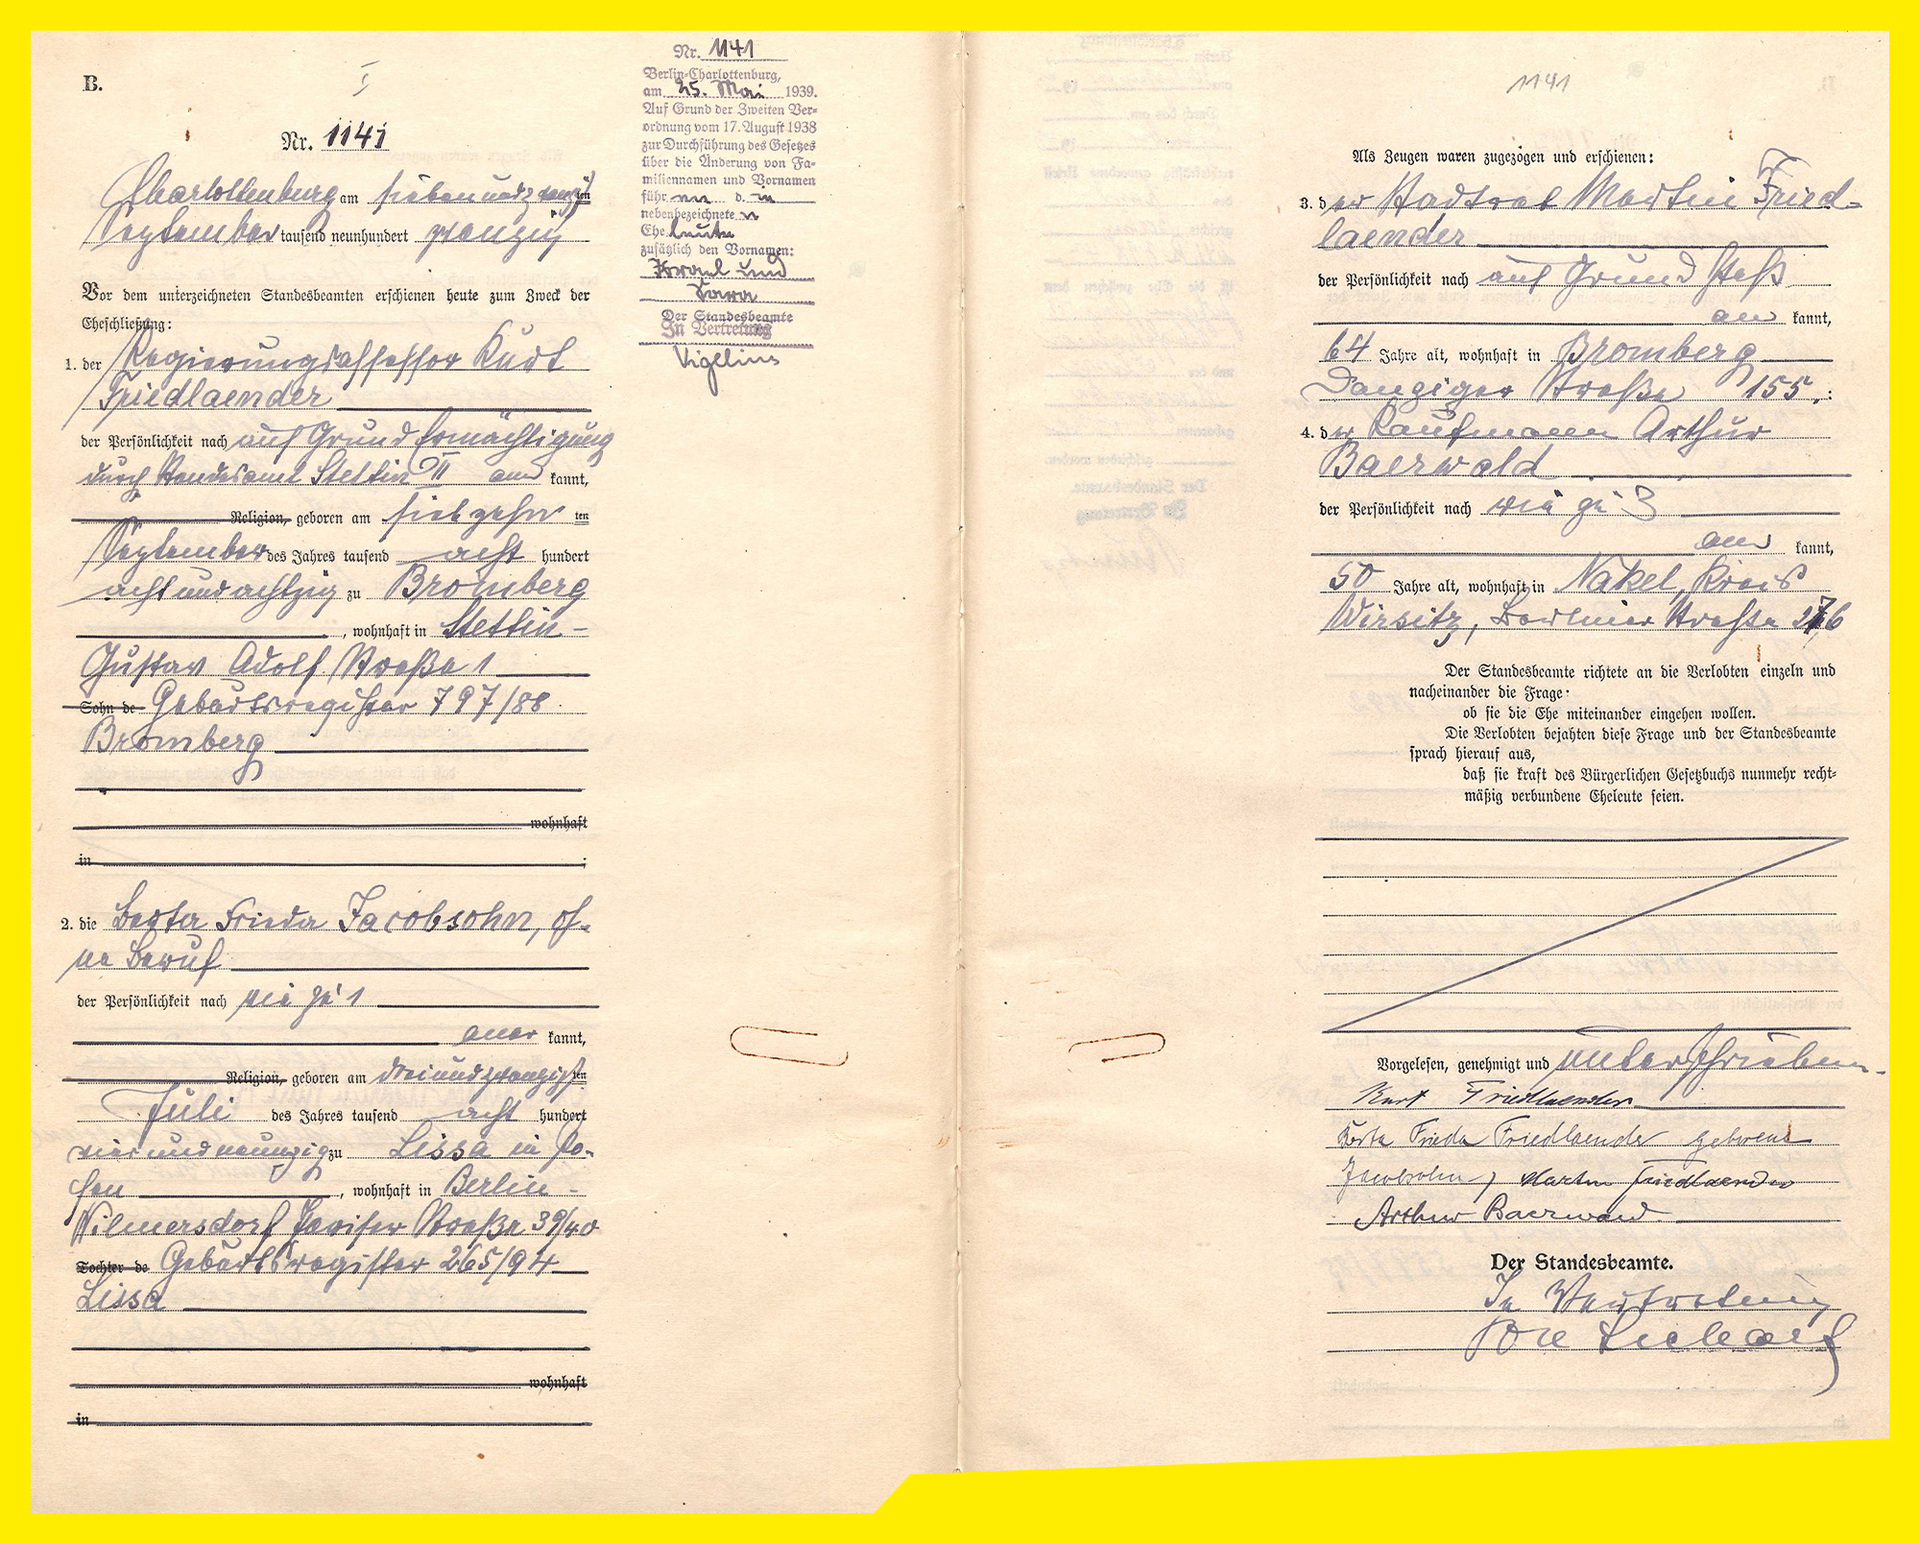 B.
I
Nr. 1141
Charlottenburg am siebenundzwanzigsten
September tausend neunhundert zwanzig
Vor dem unterzeichneten Standesbeamten erschienen heute zum Zweck der
Eheschließung:
1. der Regierungsassessor Kurt
Friedlaender
der Persönlichkeit nach auf Grund Ermächtigung
durch Standesamt Stettin II aner kannt,
Religion, geboren am siebzehn ten
September des Jahres tausend acht hundert
achtundachtzig zu Bromberg
, wohnhaft in Stettin-
Gustav Adolf Straße 1
Sohn de Geburtsregister 797/88
Bromberg
wohnhaft
in ;
2. die Berta Frieda Jacobsohn, oh-
ne Beruf
der Persönlichkeit nach wie zu 1
aner kannt,
Religion, geboren am dreiundzwanzigsten
Juli des Jahres tausend acht hundert
vierundneunzig zu Lissa in Po-
sen , wohnhaft in Berlin-
Wilmersdorf Pariser Straße 39/40
Tochter de Geburtsregister 265/94
Lissa
wohnhaft
in
Nr. 1141
Berlin-Charlottenburg,
am 25. Mai 1939.
Auf Grund der Zweiten Ver-
ordnung vom 17. August 1938
zur Durchführung des Gesetzes
über die Änderung von Fa-
miliennamen und Vornamen
führen d. ie
nebenbezeichneten
Eheleute
zusätzlich den Vornamen:
Israel und
Sara
Der Standesbeamte
In Vertretung
Vigelius
1141
Als Zeugen waren zugezogen und erschienen:
3. der Stadtrat Martin Fried-
laender
der Persönlichkeit nach auf Grund Paß
aner kannt,
64 Jahre alt, wohnhaft in Bromberg
Danziger Straße 155;
4. der Kaufmann Arthur
Baerwald
der Persönlichkeit nach wie zu 3
aner kannt,
50 Jahre alt, wohnhaft in Nakel, Kreis
Wirsitz, Berliner Straße
Der Standesbeamte richtete an die Verlobten einzeln und
nacheinander die Frage:
ob sie die Ehe miteinander eingehen wollen.
Die Verlobten bejahten diese Frage und der Standesbeamte
sprach hierauf aus,
daß sie kraft des Bürgerlichen Gesetzbuchs nunmehr recht-
mäßig verbundene Eheleute seien.
Vorgelesen, genehmigt und unterschrieben.
Kurt Friedlaender
Berta Frieda Friedlaender geborene
Jacobsohn, Martin Friedlaender
Arthur Baerwald.
Der Standesbeamte.
In Vertretung